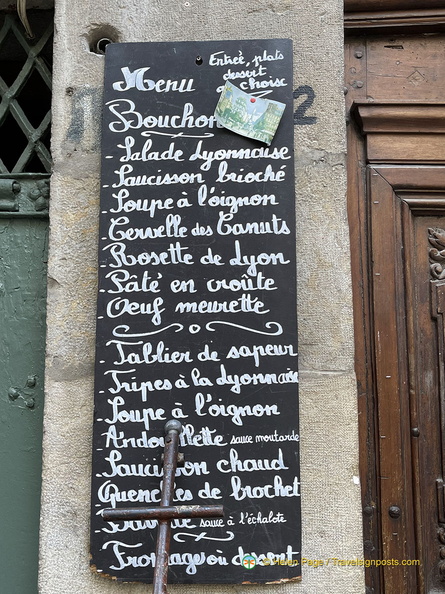 Menu
Entrée, plats
dessert
choise
Bouchon
2
- Salade Lyonnaise
- Saucisson brioché
- Soupe à l'oignon
- Cervelle des Canuts
- Rosette de Lyon
- Pâté en croûte
- Oeuf meurette
- Tablier de sapeur
- Tripes à la Lyonnaise
- Soupe à l'oignon
- Andouillette sauce moutarde
- Saucisson chaud
- Quenelles de brochet
sauce à l'échalote
Fromage où dessert
© Helen Page / Travelsignposts.com